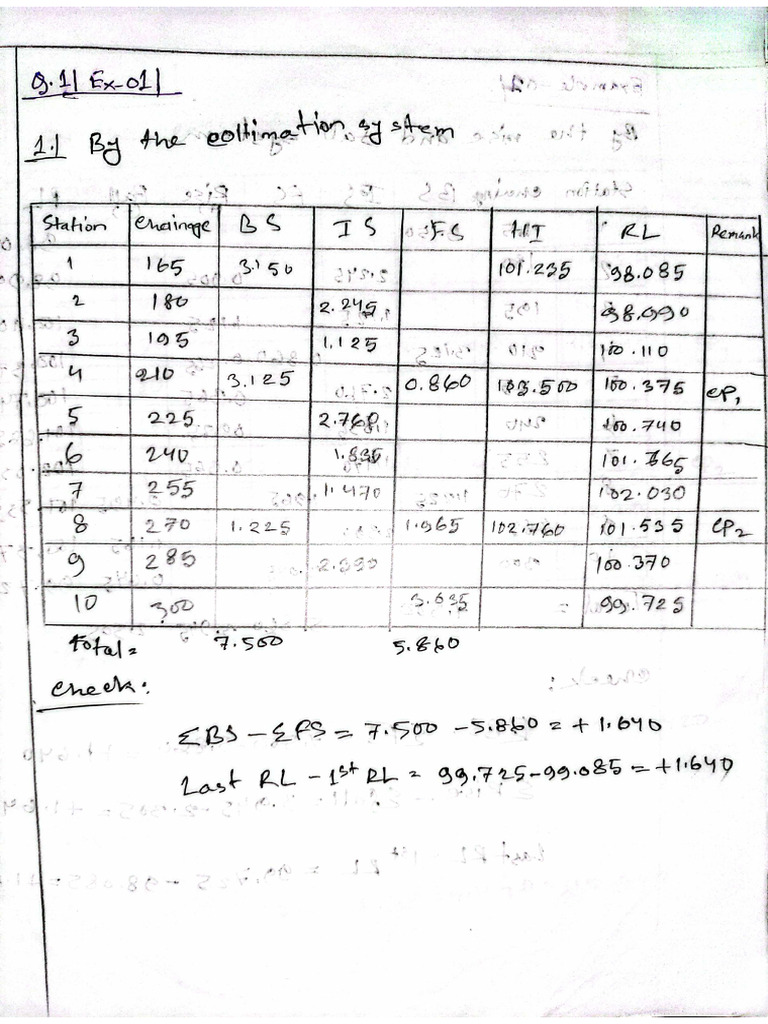 Q.1| Ex-01|
1.1 By the collimation system
Station Chainage BS IS FS HI RL Remark
1 165 3.150 101.235 98.085
2 180 2.245 98.990
3 195 1.125 100.110
4 210 3.125 0.860 103.500 100.375 CP1
5 225 2.760 100.740
6 240 1.835 101.665
7 255 1.470 102.030
8 270 1.225 1.965 102.760 101.535 CP2
9 285 2.390 100.370
10 300 3.035 99.725
Total= 7.500 5.860
Check:
ΣBS - ΣFS = 7.500 - 5.860 = +1.640
Last RL - 1st RL = 99.725-99.085 = +1.640